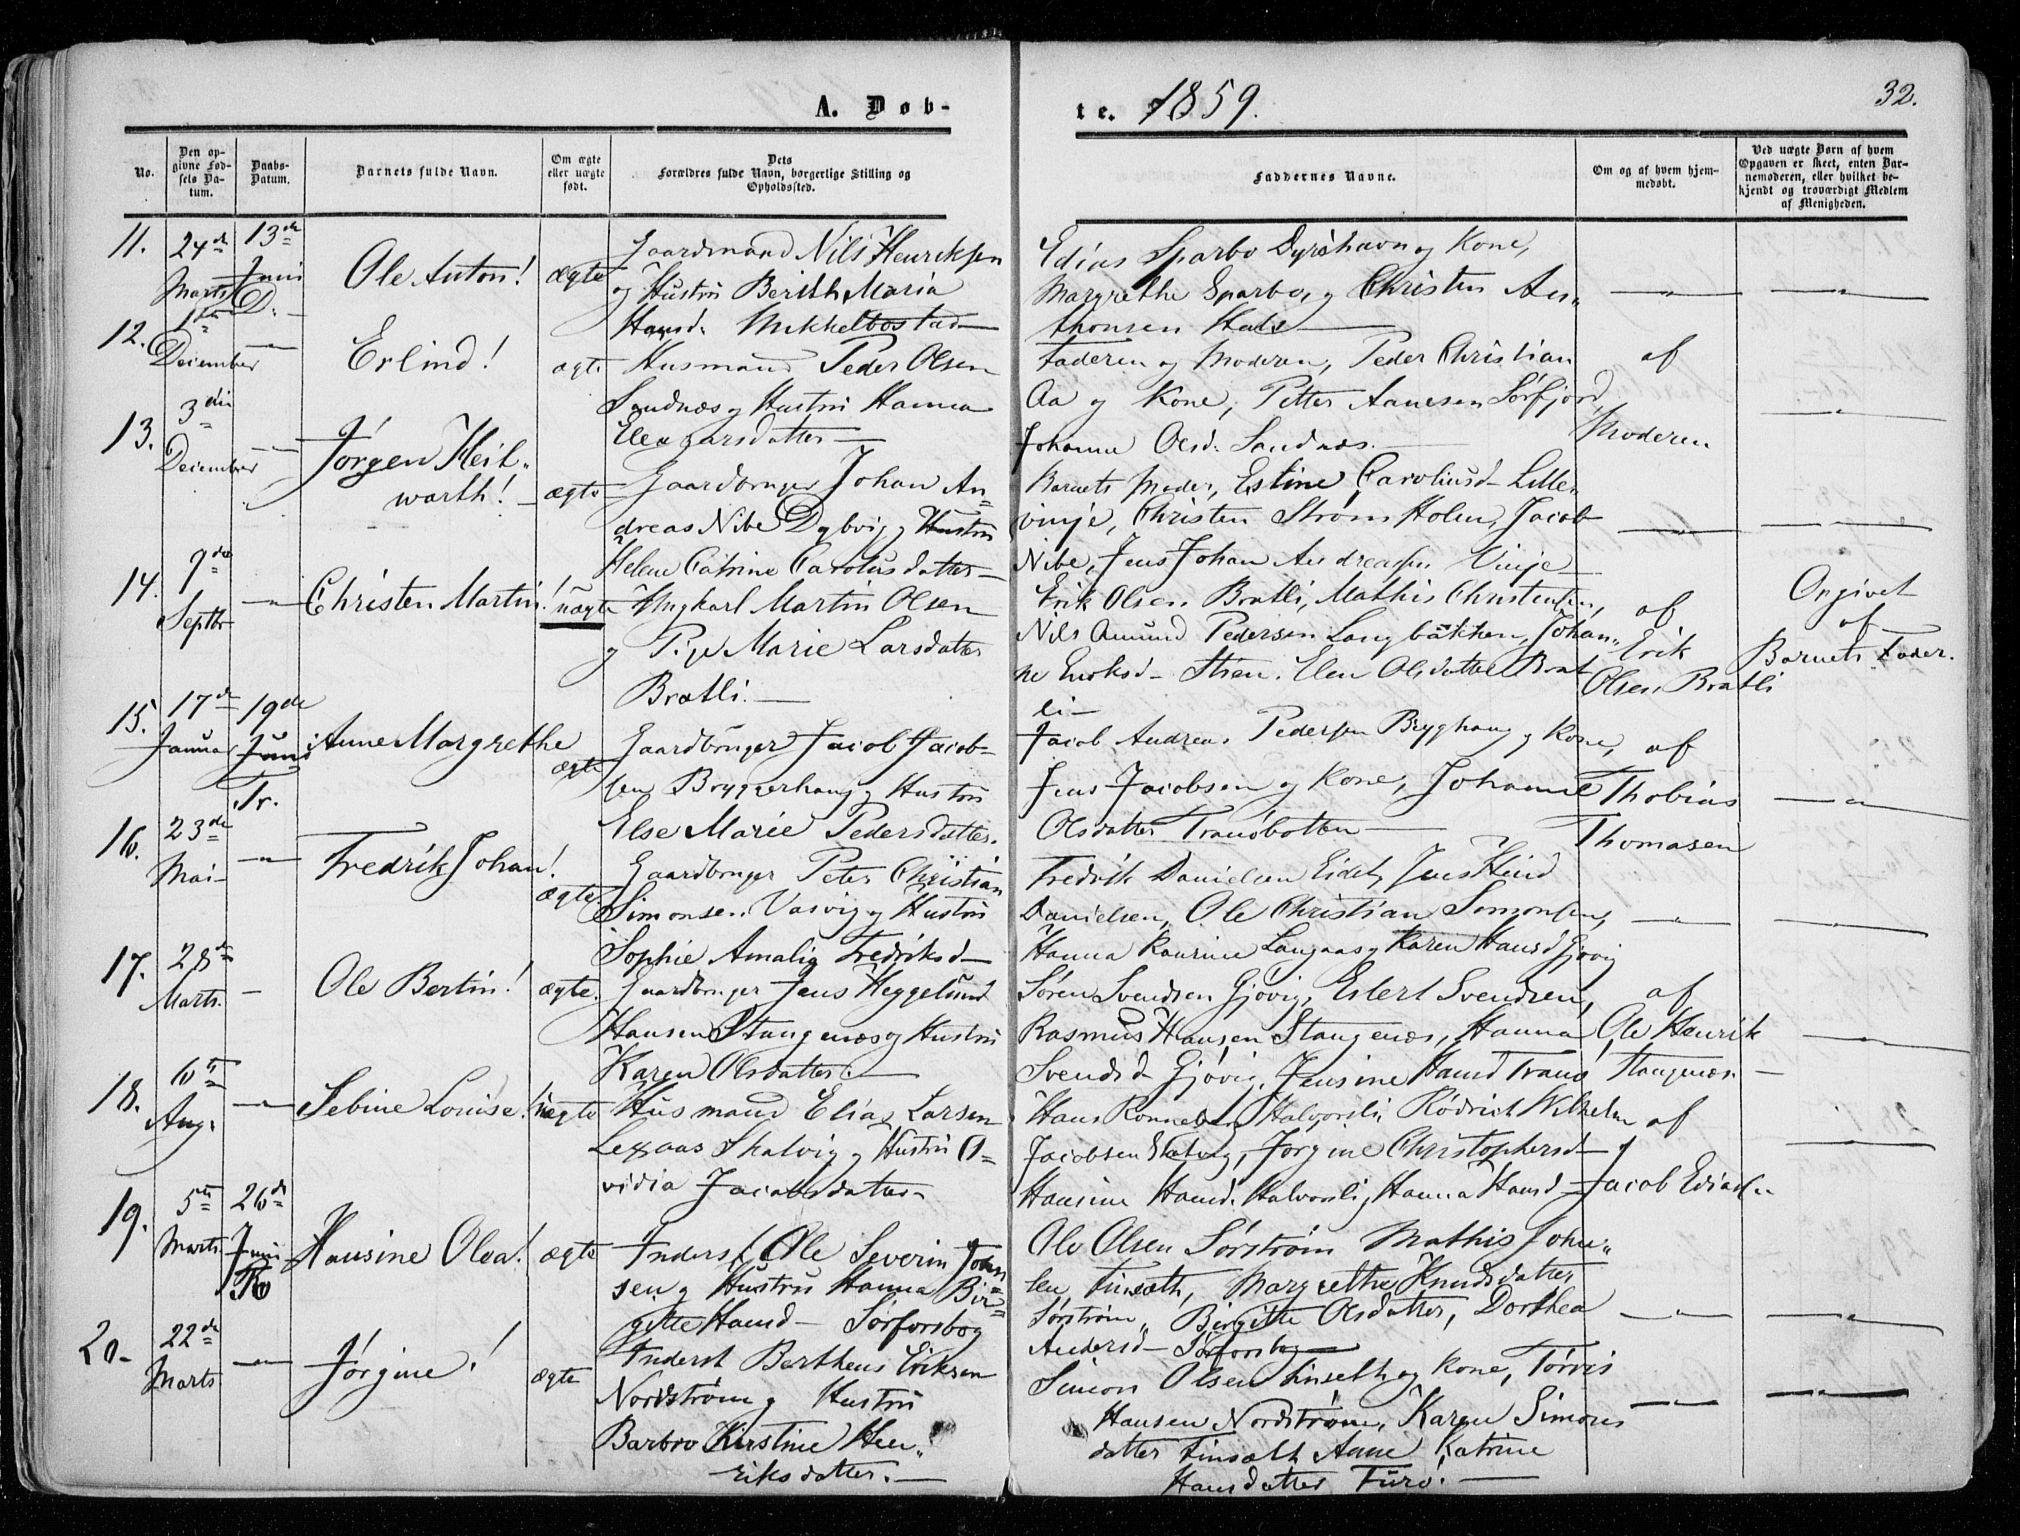 A. Døb-
te. 1859.
32.
No.
Den op-
givne Fød-
sels Da-
tum.
Daabs-
Datum.
Barnets fulde Navn.
Om ægte
eller uægte
født.
Dets
Forældres fulde Navn, borgerlige Stilling og
Opholdssted.
Faddernes Navne.
Om og af hvem hjem-
medøbt.
Ved uægte Børn af hvem
Opgaven er skeet, enten Bar-
nemoderen, eller hvilket be-
kjendt og troværdigt Medlem
af Menigheden.
11.
24de
Marts
13de
Juni
D.
Ole Anton!
ægte
Gaardmand Nils Henriksen
og Hustru Berith Maria
Hansd. Mikkelbostad
Edias Sparbo Dyrshavn og Kone,
Margrethe Sparbo, og Christen An-
thonsen Hals
12.
1ste
December
Erlind!
ægte
Husmand Peder Olsen
Sandnæs og Hustru Hanna
Eleazarsdatter
Faderen og Moderen, Peder Christian
Aa og Kone, Petter Aanesen Sørfjord,
Johanna Olsd. Sandnæs.
af
Moderen
13.
3die
December
Jørgen Meil-
warth!
ægte
Gaardbruger Johan An-
dreas Nibe Dybvig og Hustru
Helene Catrine Carolusdatter
Barnets Moder, Estine Caroliusd Lille-
vinje, Christen Strøm Holm, Jacob
Nibe, Jens Johan Andreassen Vinje
14.
9de
Septbr
Christen Martin!
uægte
Ungkarl Martin Olsen
og Pige Marie Larsdatter
Bratli.
Erik Olsen Bratli, Mathis Christensen,
Nils Amund Pedersen Langbakken, Johan-
ne Enoksd Steen. Elen Olsdatter Brat
li
af
Erik
Olsen Bratli
Opgivet
af
Barnets Fader.
15.
17de
Januar
19de
Juni
Tr.
Anne Margrethe
ægte
Gaardbruger Jacob Jacob-
sen Bryggerhaug og Hustru
Else Marie Pedersdatter.
Jacob Andreas Pedersen Brygghaug og Kone,
Jens Jacobsen og Kone, Johanne
Olsdatter Tranøbotten
af
Thobias
Thomasen
16.
23de
Mai
Fredrik Johan!
ægte
Gaardbruger Peter Christian
Simonsen Vasvig og Hustru
Sophie Amalia Fredriksd
Fredrik Danielsen Eidet, Jens Hind
Danielsen, Ole Christian Simonsen,
Hanna Laurine Langaas og Karen Hansd Gjøvig
17.
28de
Marts.
Ole Bertin!
ægte.
Gaardbruger Jens Heggelund
Hansen Stangenæs og Hustru
Karen Olsdatter.
Søren Svendsen Gjøvig, Eilert Svendsen,
Rasmus Hansen Stangenæs, Hanna
Svendsd Gjøvig, Jensine Hansd Tranø
af
Ole Henrik
Stangenæs.
18.
6te
Aug.
Sebine Louise!
ægte
Husmand Elias Larsen
Lexaas Skatvig og Hustru O-
vidia Jacobsdatter
Hans Rønneberg Halvorsli Rødrich Wilhelm
Jacobsen Skatvig, Jørgine Christophersd
Hansine Hansd. Halvorsli, Hanna Hansd
af
Jacob Ediassen
19.
5te
Marts
26de
Juni
Ro
Hansine Olea!
ægte
Inderst Ole Severin John-
sen og Hustru Hanna Bir-
gitte Hansd Sørforsbog
Ole Olsen Sørstrøm Mathis John-
sen, Finsæth, Margrethe Knudsdatter
Sørstrøm, Birgitte Olsdatter, Dorthea
Andersd Sørforsbog
20.
22de
Marts
Jørgine!
ægte
Inderst Bertheus Eriksen
Nordstrøm og Hustru
Barbro Kirstine Hen-
riksdatter.
Simon Olsen Finseth og Kone, Tørris
Hansen Nordstrøm, Karen Simons
datter Finsæth Anne Katrine
Hansdatter Furø.